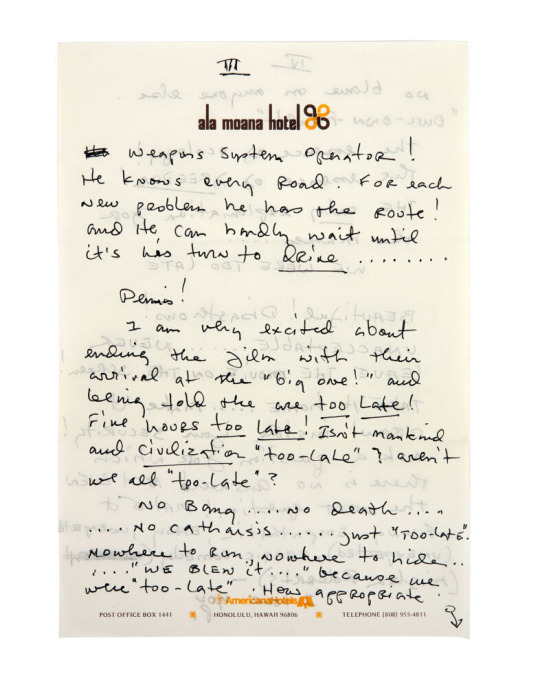 III
ala moana hotel
Weapons System Operator!
He knows every Road. For each
new problem he has the Route!
and He can hardly wait until
it's his turn to DRive ........
Dennis!
I am very excited about
ending the film with their
arrival at the "big one!" and
being told the are too Late!
Five hours too late! Isn't mankind
and civilization "too-late"? aren't
we all "too-late"?
No Bang .... no death ....
.... No catharsis ..... just "TOO-LATE".
Nowhere to Run, Nowhere to hide..
...."WE BLEW it...." because we
were "too-late". How appropriate.
AmericanaHotels
POST OFFICE BOX 1441 HONOLULU, HAWAII 96806 TELEPHONE (808) 955-4811